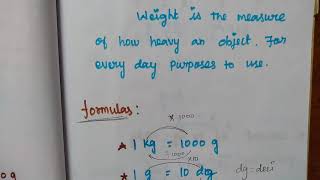 Weight is the measure
of how heavy an object. For
every day purposes to use.
Formulas:
× 1000
★ 1 kg = 1000 g
÷ 1000
×10
★ 1 g = 10 dg
dg = deci
00 g